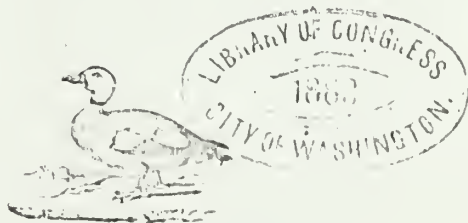 LIBRARY OF CONGRESS
CITY OF WASHINGTON.